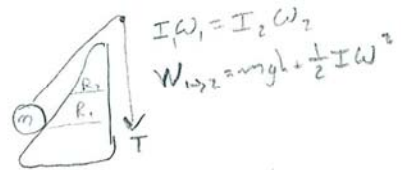 I₁ω₁ = I₂ω₂
W₁→₂ = mgh + ½Iω²
R₂
R₁
m
T